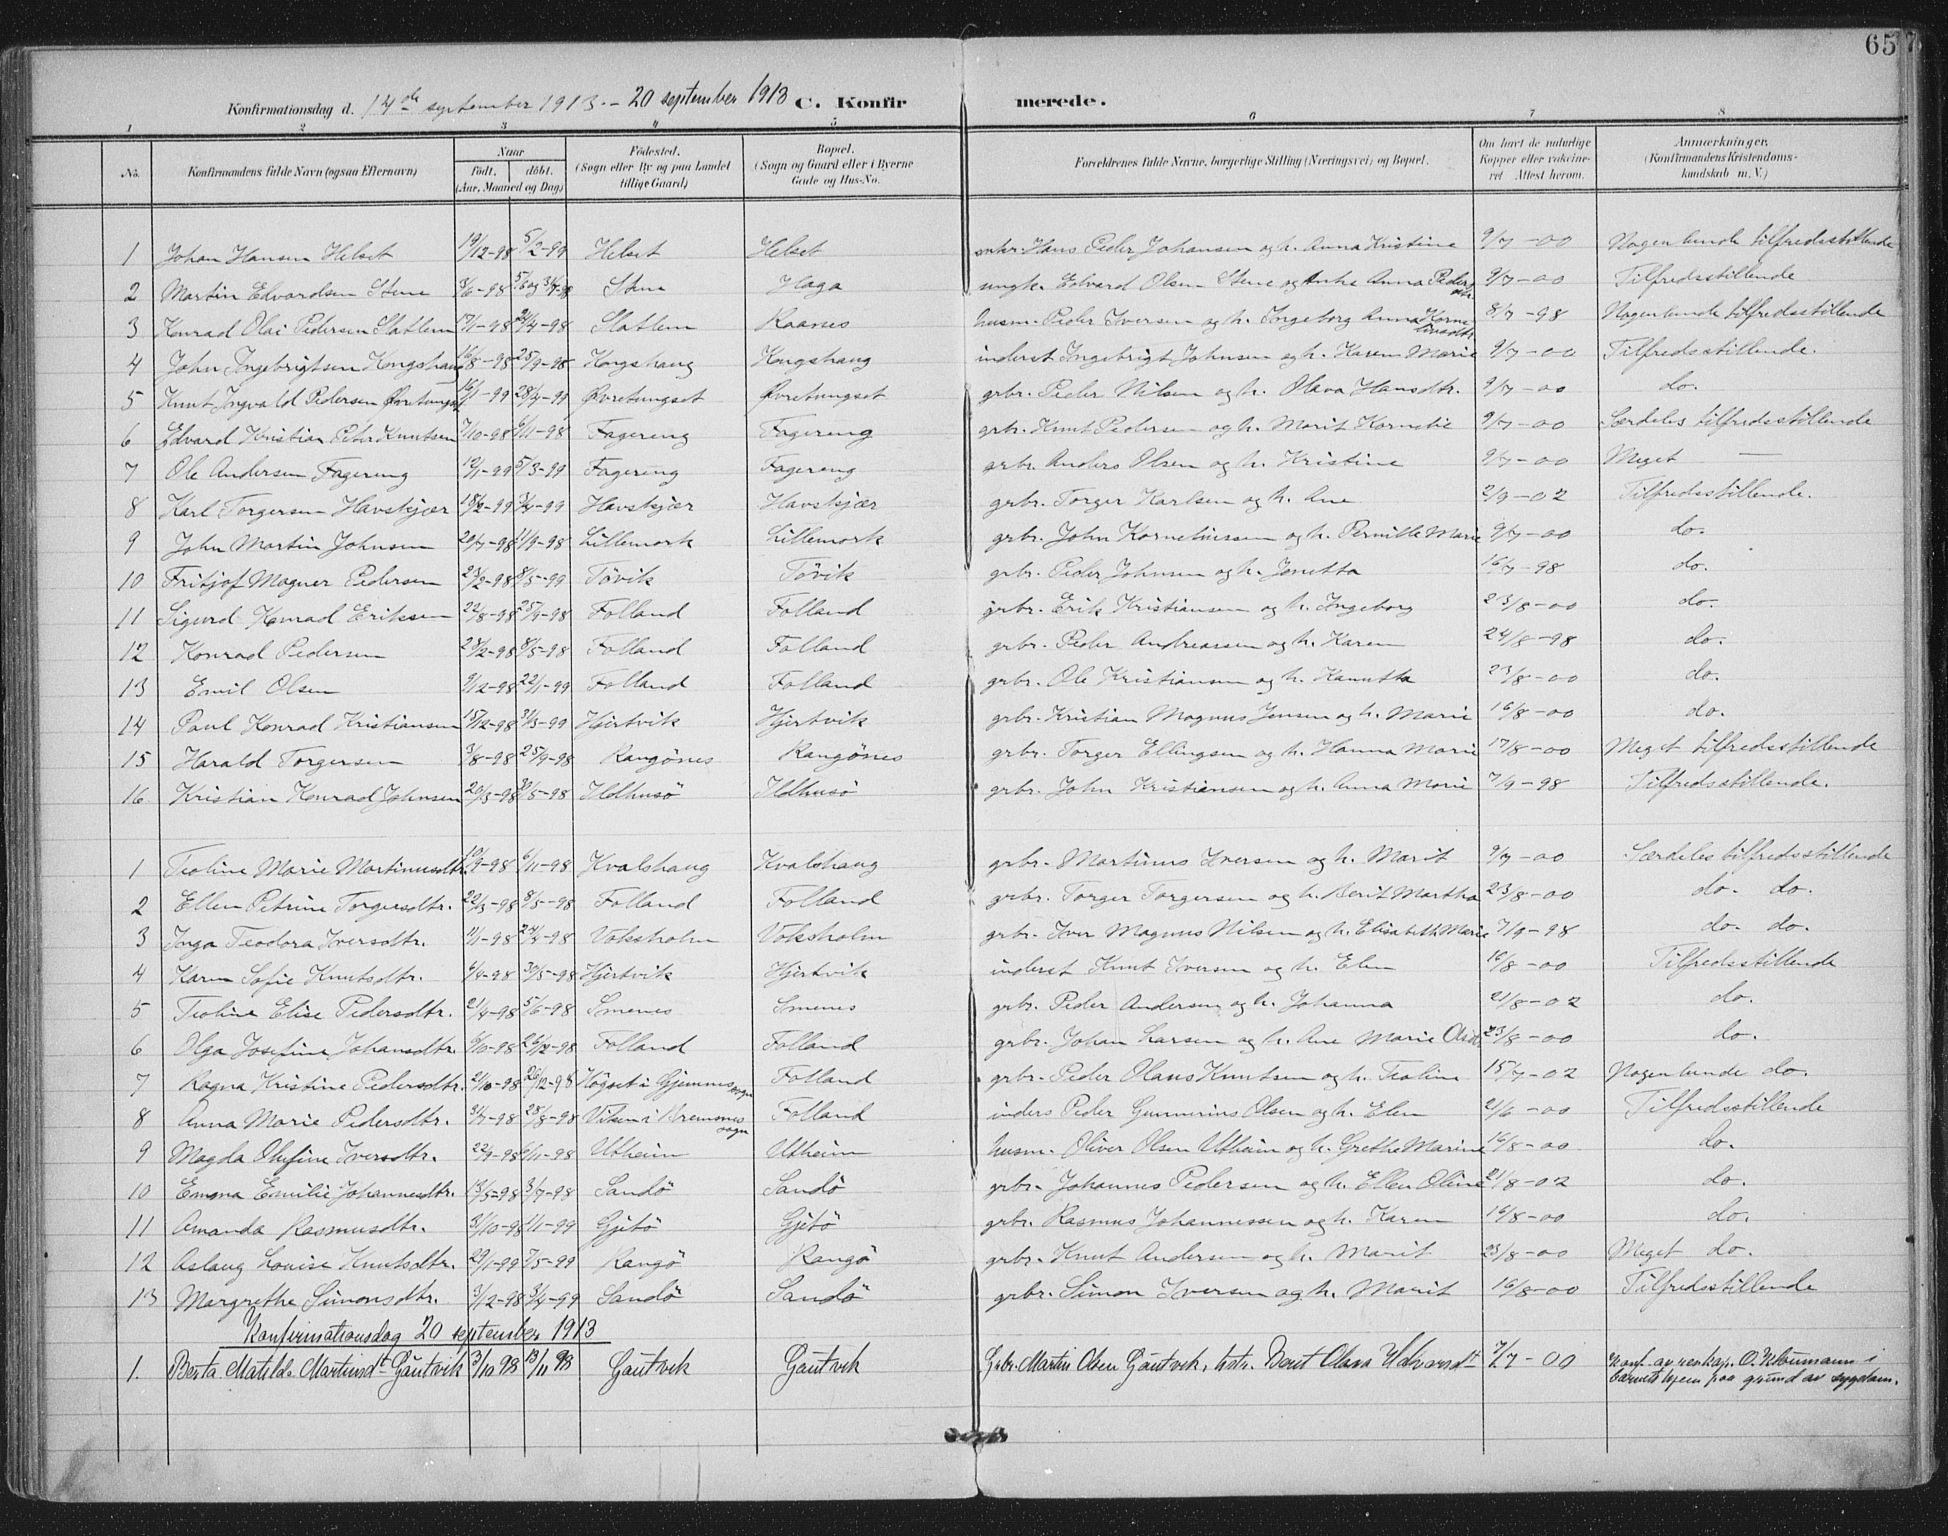 65
Konfirmationsdag d. 14de september 1913. - 20 september 1913 C. Konfirmerede.
1 2 3 4 5 6 7 8
No. Konfirmandens fulde Navn (ogsaa Efternavn) Naar født, døbt. (Aar, Maaned og Dag) Fødested. (Sogn eller By og paa Landet tillige Gaard) Bopæl. (Sogn og Gaard eller i Byerne Gade og Hus-No. Forældrenes fulde Navne, borgerlige Stilling (Næringsvei) og Bopæl. Om havt de naturlige Kopper eller vaccineret Attest herom. Anmærkninger. (Konfirmandens Kristendomskundskab m. V.)
1 Johan Hansen Helset 19/12-98 5/2-99 Helset Helset Hans Peder Johansen og h. Anna Kristine 9/7-00 Nogenlunde tilfredsstillende
2 Martin Edvardsen Stene 3/6-98 Stene Haga ungk. Edvard Olsen Stene og enke Anna Pedersdtr. 9/7-00 Tilfredsstillende
3 Konrad Olai Pedersen Slatlem 17/1-98 24/4-98 Slatlem Raanes husm. Peder Iversen og h. Ingeborg Anna Korneliusdtr. 8/7-98 Nogenlunde tilfredsstillende
4 John Ingebrigtsen Kongshaug 16/8-98 25/9-98 Kongshaug Kongshaug inderst Ingebrigt Johnsen og h. Karen Marie 9/7-00 Tilfredsstillende.
5 Knut Ingvald Pedersen Øvretungset 16/1-99 28/4-99 Øvretungset Øvretungset grbr. Peder Nilsen og h. Olava Hansdtr. 9/7-00 do.
6 Edvard Kristian Peter Knutsen 7/10-98 6/11-98 Fagereng Fagereng grbr. Knut Pedersen og h. Marit Kornelie 9/7-00 Særdeles tilfredsstillende
7 Ole Andersen Fagereng 12/1-99 5/3-99 Fagereng Fagereng grbr. Anders Olsen og h. Kristine 9/7-00 Meget —
8 Karl Torgersen Havskjær 18/2-99 3/4-99 Havskjær Havskjær grbr. Torger Karlsen og h. Ane 2/9-02 Tilfredsstillende.
9 John Martin Johnsen 20/7-98 11/9-98 Lillemork Lillemork grbr. John Korneliussen og h. Pernille Marie 9/7-00 do.
10 Fritjof Magner Pedersen 23/2-98 8/5-99 Tövik Tövik grbr. Peder Johnsen og h. Jenetta 16/7-98 do.
11 Sigurd Konrad Eriksen 22/8-98 25/9-98 Folland Folland grbr. Erik Kristiansen og h. Ingeborg 23/8-00 do.
12 Konrad Pedersen 28/2-98 8/5-98 Folland Folland grbr. Peder Andreassen og h. Karen 24/8-98 do.
13 Emil Olsen 9/12-98 22/1-99 Folland Folland grbr. Ole Kristiansen og h. Kanutta 23/8-00 do.
14 Paul Konrad Kristiansen 15/12-98 3/3-99 Hjertvik Hjertvik grbr. Kristian Magnus Jensen og h. Marie 16/8-00 do.
15 Harald Torgersen 3/8-98 25/9-98 Rangönes Rangönes grbr. Torger Ellingsen og h. Hanna Marie 17/8-00 Meget tilfredsstillende
16 Kristian Konrad Johnsen 20/3-98 30/5-98 Ildhusö Ildhusö grbr. John Kristiansen og h. Anna Marie 7/9-98 Tilfredsstillende.
1 Teoline Marie Martinusdtr. 10/9-98 6/11-98 Kvalshaug Kvalshaug grbr. Martinus Iversen og h. Marit 9/7-00 Særdeles tilfredsstillende
2 Ellen Petrine Torgersdtr. 22/3-98 8/5-98 Folland Folland grbr. Torger Torgersen og h. Berit Martha 23/8-00 do. do.
3 Inga Teodora Iversdtr. 11/1-98 24/4-98 Voksholm Voksholm grbr. Iver Magnus Nilsen og h. Elisabeth Marie 7/9-98 do. do.
4 Karen Sofie Knutsdtr. 6/4-98 30/5-98 Hjertvik Hjertvik inderst Knut Iversen og h. Elen 16/8-00 Tilfredsstillende
5 Teoline Elise Pedersdtr. 21/4-98 5/6-98 Smenes Smenes grbr. Peder Andersen og h. Johanna 21/8-02 do.
6 Olga Josefine Johansdtr. 6/10-98 26/12-98 Folland Folland grbr. Johan Larsen og h. Ane Marie Olsd. 23/8-00 do.
7 Ragna Kristine Pedersdtr. 21/10-98 26/12-98 Högset i Gjemnes sogn Folland grbr. Peder Olaus Knutsen og h. Teoline 15/7-02 Nogenlunde do.
8 Anna Marie Pedersdtr. 31/7-98 28/8-98 Viken i Bremsnes sogn Folland inders Peder Gunnerius Olsen og h. Elen 21/6-00 Tilfredsstillende
9 Magda Olufine Iversdtr. 22/9-98 6/11-98 Utheim Utheim husm. Oliver Olsen Utheim og h. Grethe Marine 16/8-00 do.
10 Emma Emilie Johannesdtr. 13/5-98 3/7-98 Sandö Sandö grbr. Johannes Pedersen og h. Ellen Oline 21/8-02 do.
11 Amanda Rasmusdtr. 31/10-98 1/1-99 Gjetö Gjetö grbr. Rasmus Johannessen og h. Karen 16/8-00 do.
12 Aslaug Louise Knutsdtr. 29/1-99 7/5-99 Rangö Rangö grbr. Knut Andersen og h. Marit 23/8-00 Meget do.
13 Margrethe Simonsdtr. 3/12-98 3/4-99 Sandö Sandö grbr. Simon Iversen og h. Marit 16/8-00 Tilfredsstillende
Konfirmationsdag 20 september 1913
1. Berta Matilde Martinsdt Gautvik 3/10 98 13/11 98 Gautvik Gautvik Grbr. Martin Olsen Gautvik, hstr. Beret Olava Halvorsdt 7/7-00 Konf. av reskap. O. Kloumann i barnets hjem paa grund av sygdom.